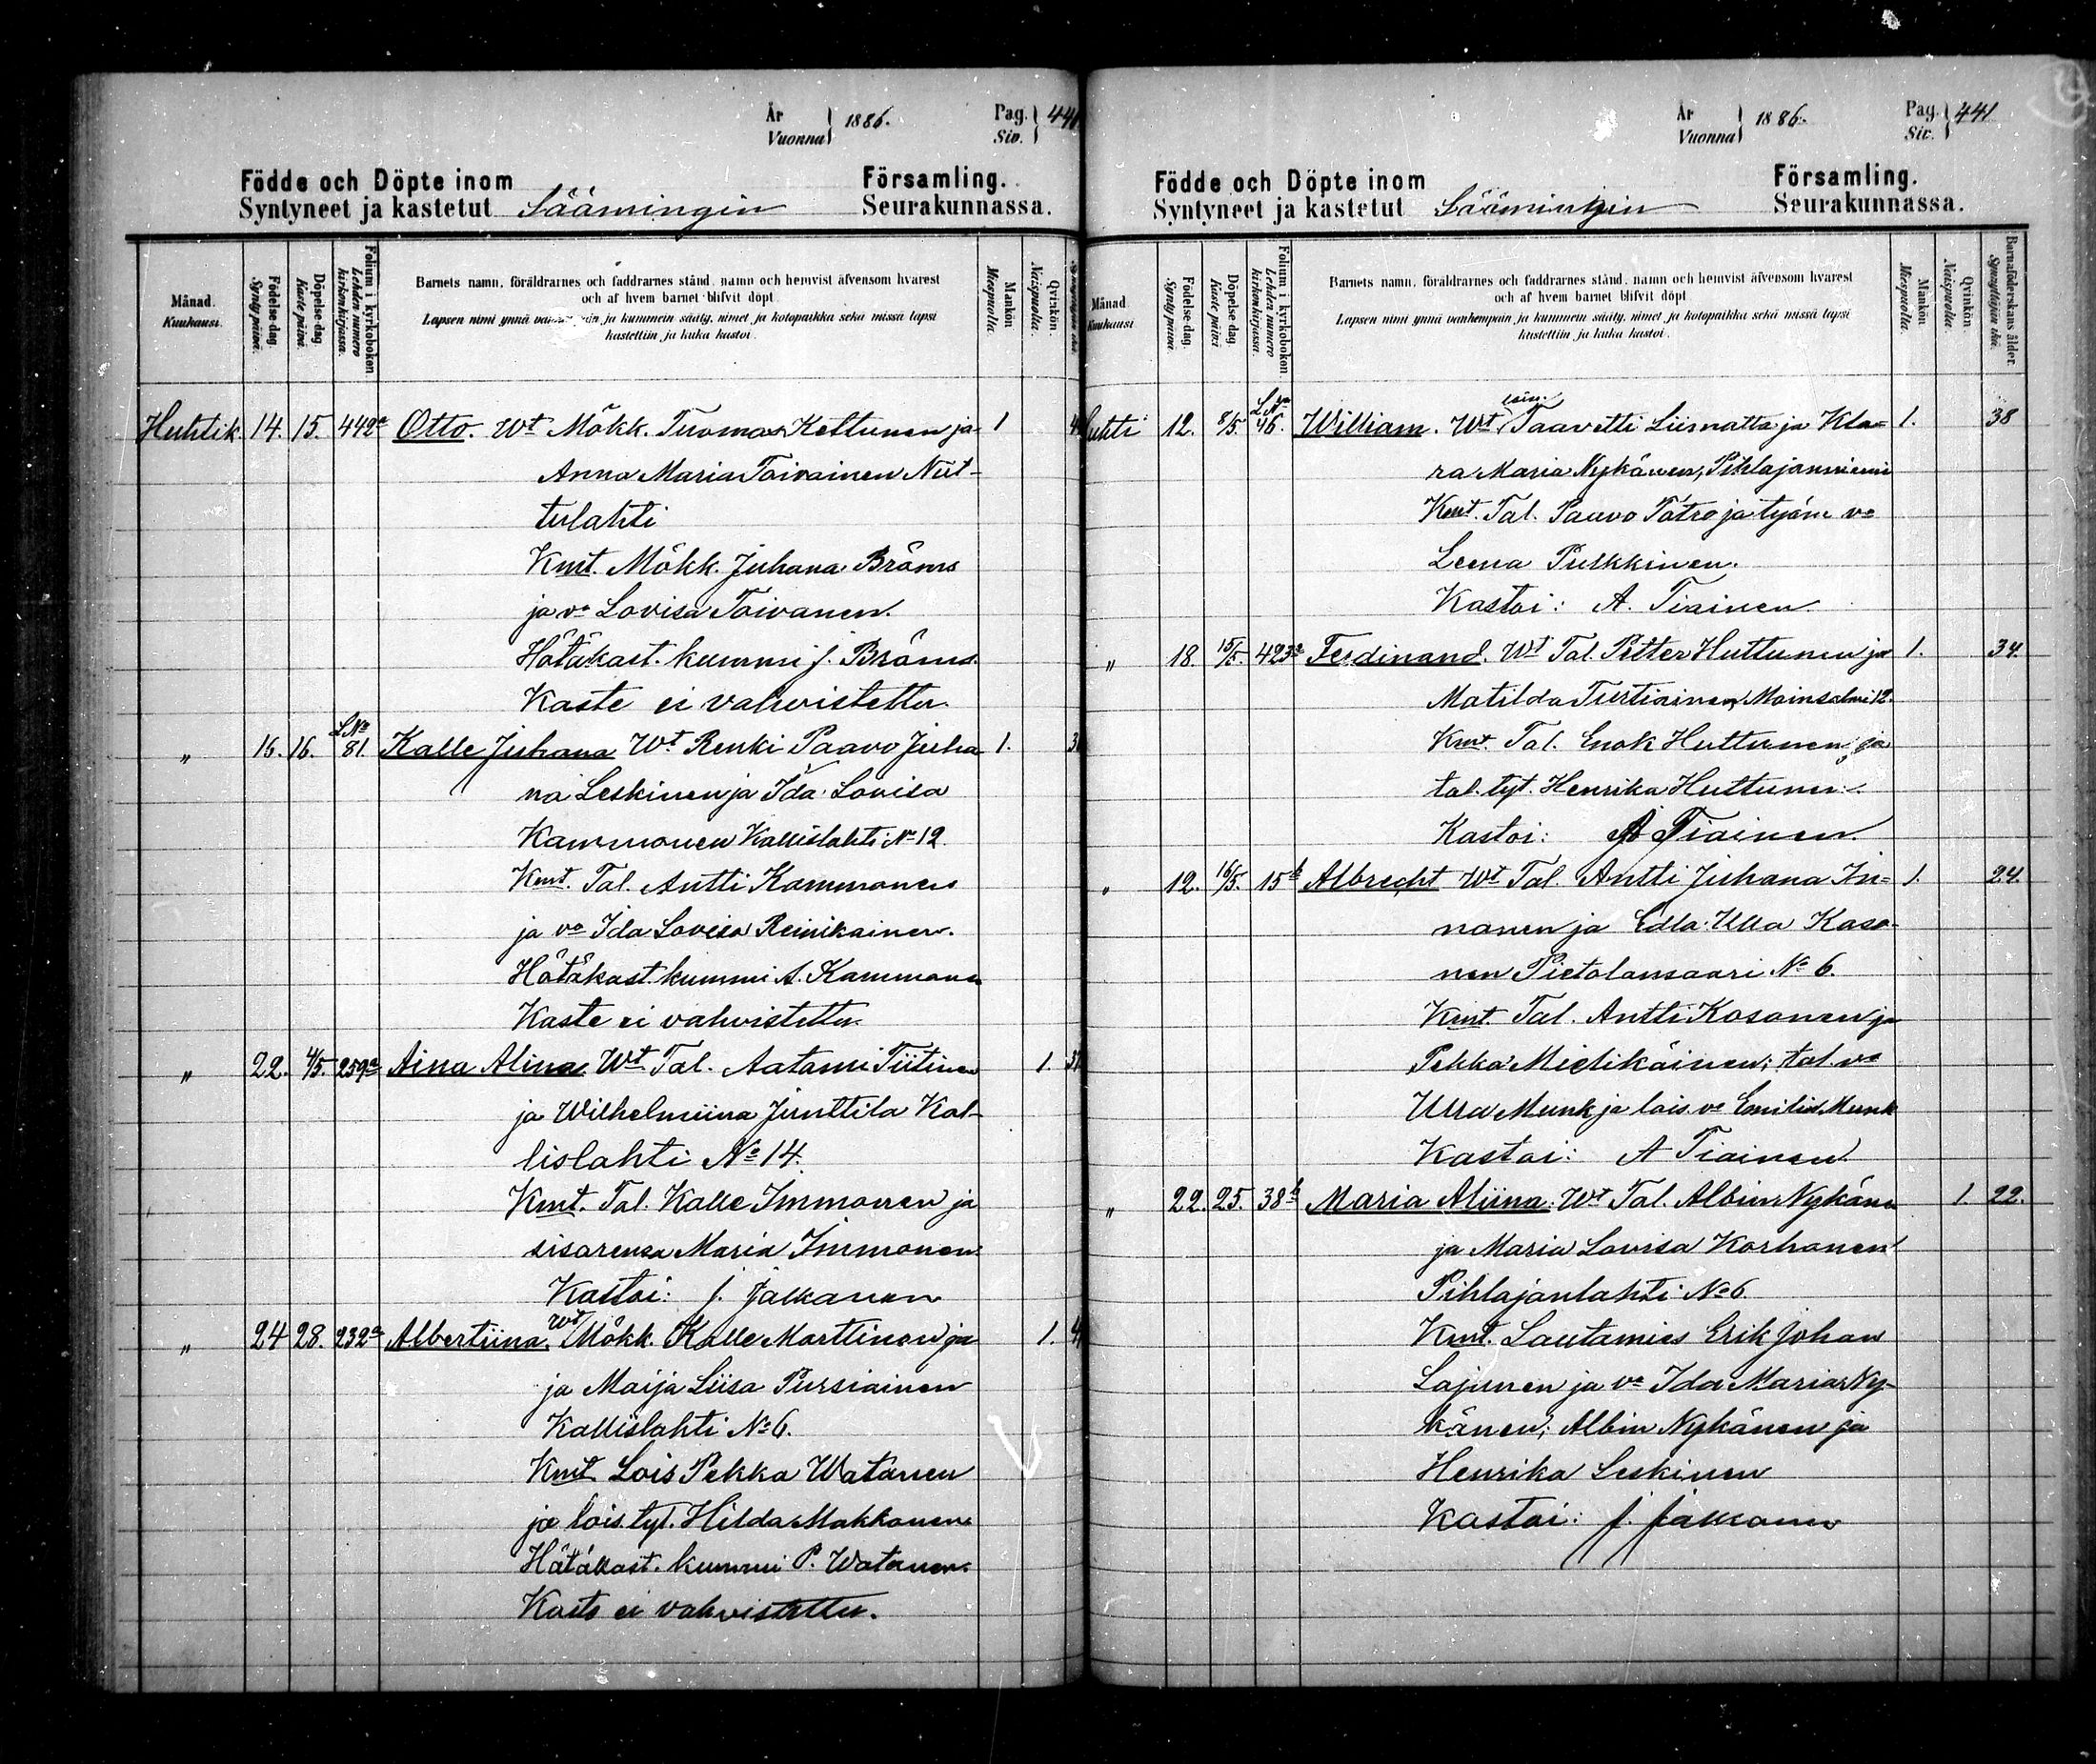 År
Vuonna
1886.
Pag.
Siv.
Födde och Döpte inom
Syntyneet ja kastetut
Säämingin
Församling.
Seurakunnassa.
Månad.
Kuukausi.
Födelse-dag.
Syntypäivä.
Döpelse-dag.
Kaste päivä.
Folium i kyrkobokon
Lehden numero kirkonkirjassa.
Barnets namn, föräldrarnes och faddrarnes stånd, namn och hemvist äfvensom hvarest
och af hvem barnet blifvit döpt
Lapsen nimi ynnä ja kummein sääty, nimet ja kotopaikka sekä missä lapsi
kastettiin ja kuka kastoi.
Mankön
Miespuolta.
Qvinkön.
Naispuolta.
Huhtik. 14. 15. 442a Otto. Wt Mökk. Tuomas Kettunen ja 1
Anna Maria Toivainen Niit-
tulahti
Kmt. Mökk. Juhana Bröms
ja vo Lovisa Toivanen.
Hätäkast. kummi J. Bröms.
Kaste ei vahvistettu.
" 16. 16. LNo 81. Kalle Juhana Wt Renki Paavo Juha 1.
na Leskinen ja Ida Lovisa
Kammonen Kallislahti No 12.
Kmt. Tal. Antti Kammonen
ja vo Ida Lovisa Reinikainen.
Hätäkast. kummi A. Kammonen
Kaste ei vahvistettu.
" 22. 4/5. 259a Aina Alina Wt Tal. Aatami Tiitinen 1.
ja Wilhelmiina Junttila Kal-
lislahti No 14.
Kmt. Tal. Kalle Immonen ja
sisarensa Maria Immonen.
Kastoi: J. Jalkanen
" 24 28. 232a Albertiina, Wt Mökk. Kalle Marttinen ja 1.
ja Maija Liisa Pursiainen
Kallislahti No 6.
Kmt Lois Pekka Watanen
ja lois. tyt. Hilda Makkonen
Hätäkast. kummi P. Watanen.
Kaste ei vahvistettu.
År
Vuonna
1886.
Pag.
Siv.
441
Födde och Döpte inom
Syntyneet ja kastetut
Säämingin
Församling.
Seurakunnassa.
Månad.
Kuukausi
Födelse-dag.
Syntypäivä.
Döpelse-dag.
Kaste päivä
Folium i kyrkobokon
Lehden numero kirkonkirjassa.
Barnets namn, föräldrarnes och faddrarnes stånd, namn och hemvist äfvensom hvarest
och af hvem barnet blifvit döpt
Lapsen nimi ynnä vanhempain ja kummein sääty, nimet ja kotopaikka sekä missä lapsi
kastettiin ja kuka kastoi.
Mankön
Miespuolta.
Qvinkön
Naispuolta.
Barnaföderskans ålder.
Synnyttäjän ikä.
huhti 12. 8/5. LNo 46. William. Wt Taavetti Liimatta ja Kla= 1. 38
ra Maria Nykänen, Pihlajanniemi
Kmt. Tal. Paavo Tátro ja tyám vo
Leena Pulkkinen.
Kastoi: A. Tiainen
" 18. 15/5. 423a Ferdinand. Wt Tal. Petter Huttunen ja 1. 34.
Matilda Turtiainen, Moinsalmi 12.
Kmt. Tal. Enok Huttunen ja
tal. tyt. Henrika Huttunen.
Kastoi: A Tiainen.
" 12. 16/5. 15b Albrecht Wt Tal. Antti Juhana In= 1. 24.
nanen ja Edla Ulla Koso-
nen Pietolansaari No 6.
Kmt. Tal. Antti Kosonen ja
Pekka Mietikäinen; tal. vo
Ulla Munk ja lois. vo Emilia Munk
Kastoi: A Tiainen
" 22. 25. 38b Maria Aliina. Wt Tal. Albin Nykänen 1. 22.
ja Maria Lovisa Korhonen
Pihlajanlahti No 6
Kmt. Lautamies Erik Johan
Lajunen ja vo Ida Maria Ny-
känen; Albin Nykänen ja
Henrika Leskinen
Kastoi: J. Jalkanen